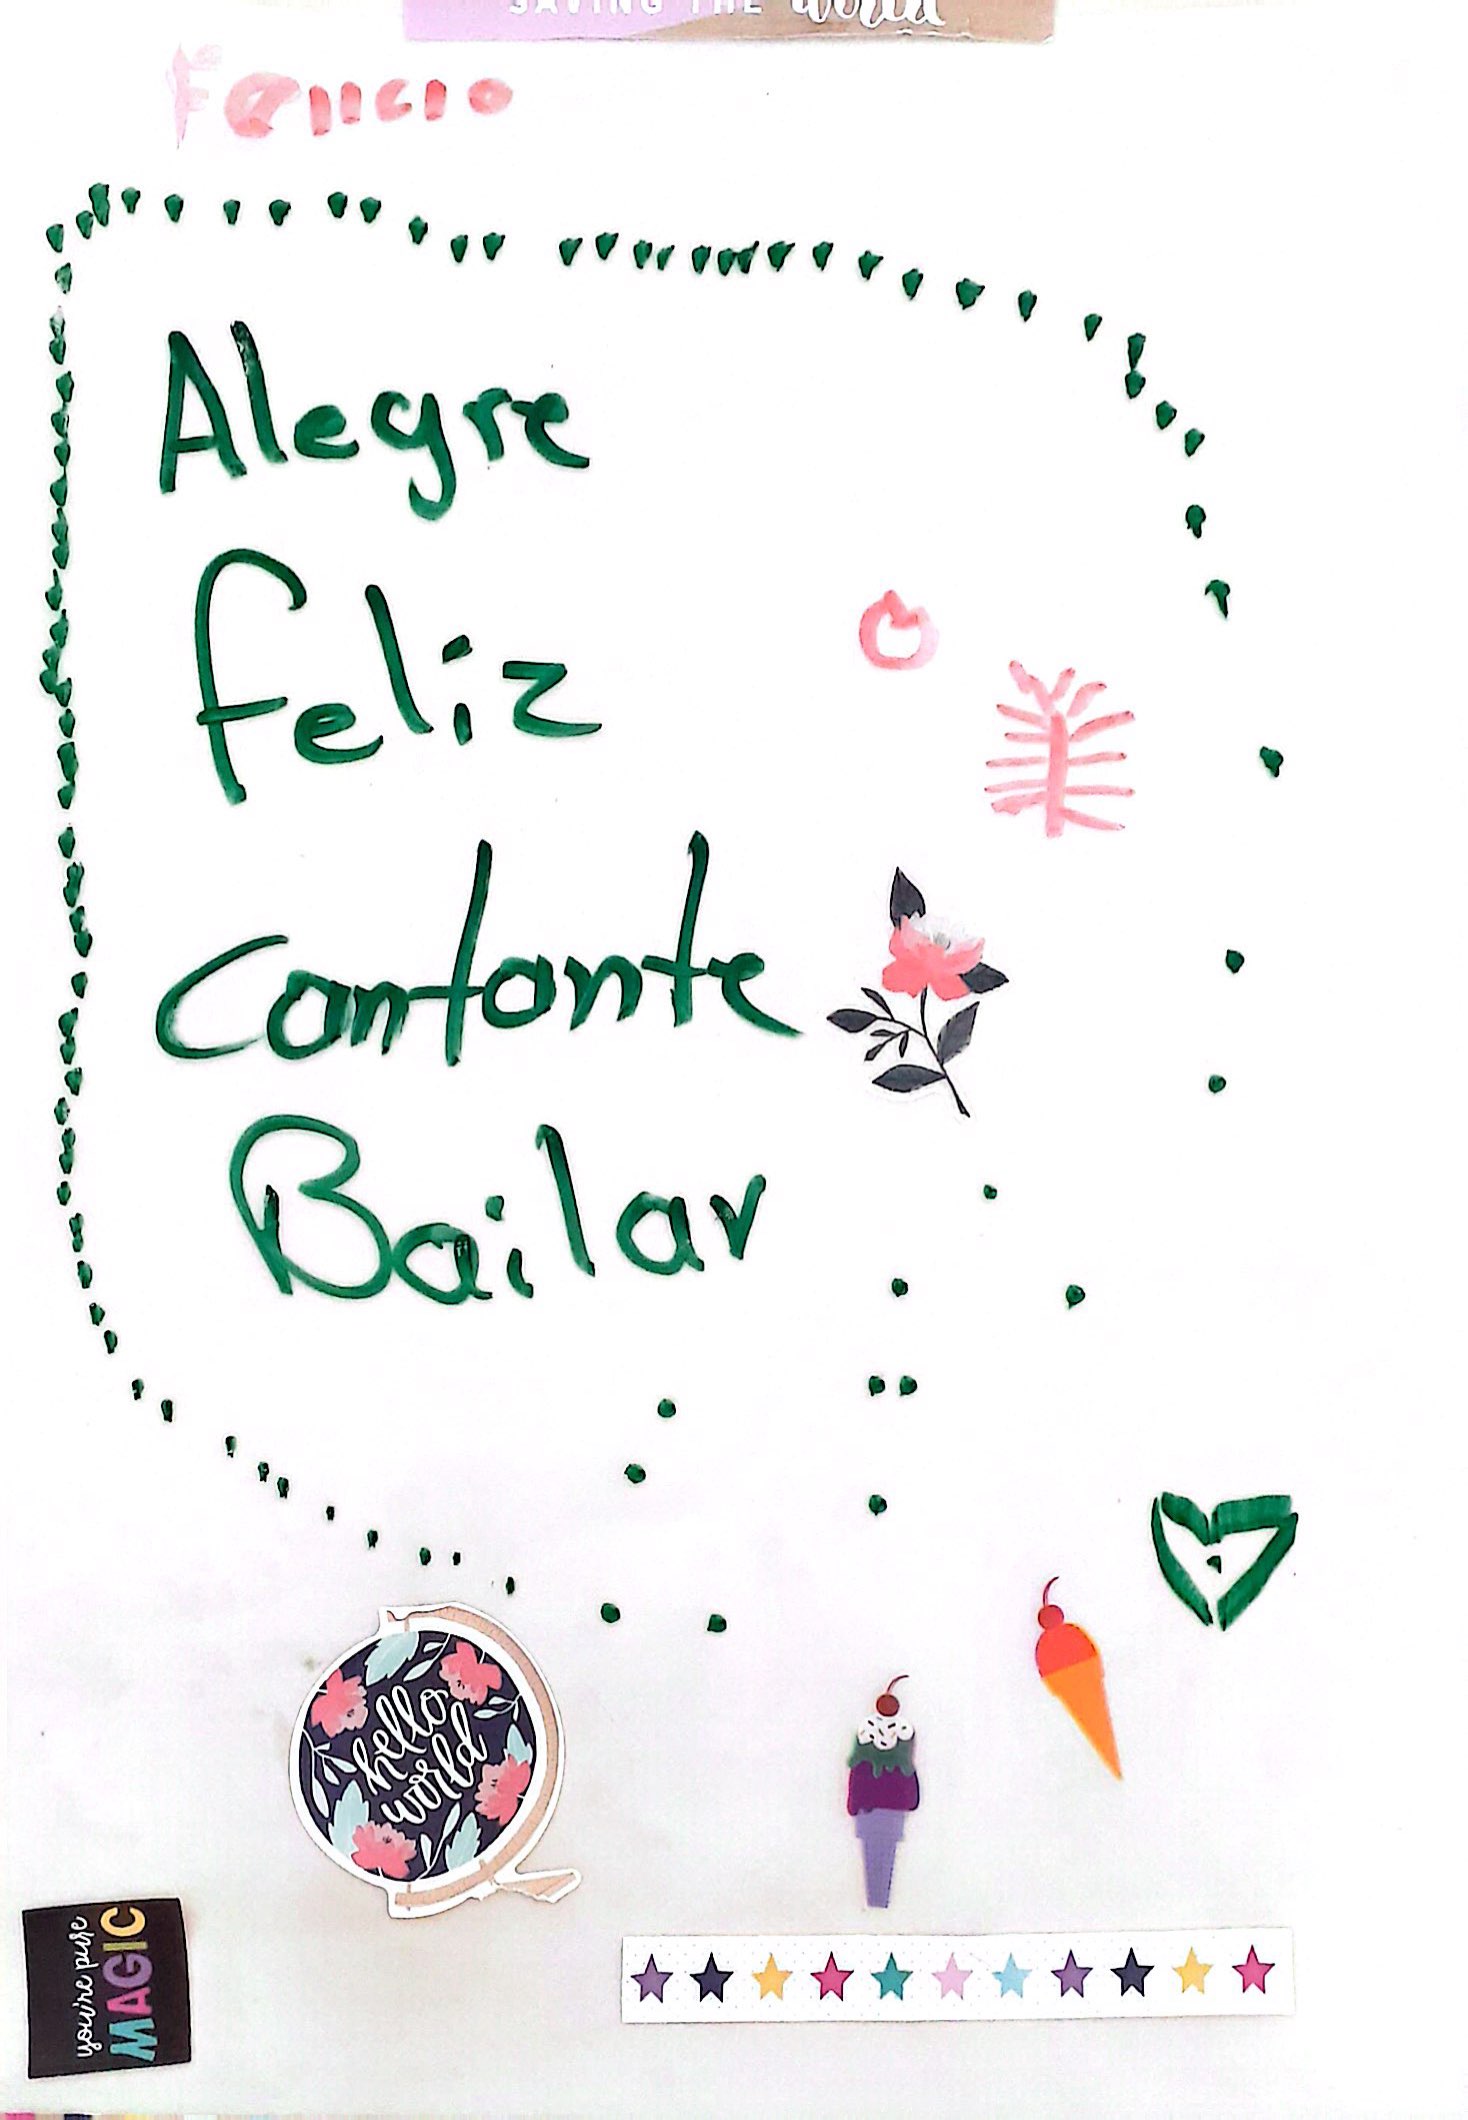 SAVING THE world
Felicio
Alegre
Feliz
Cantante
Bailar
hello
world
you're pure
MAGIC